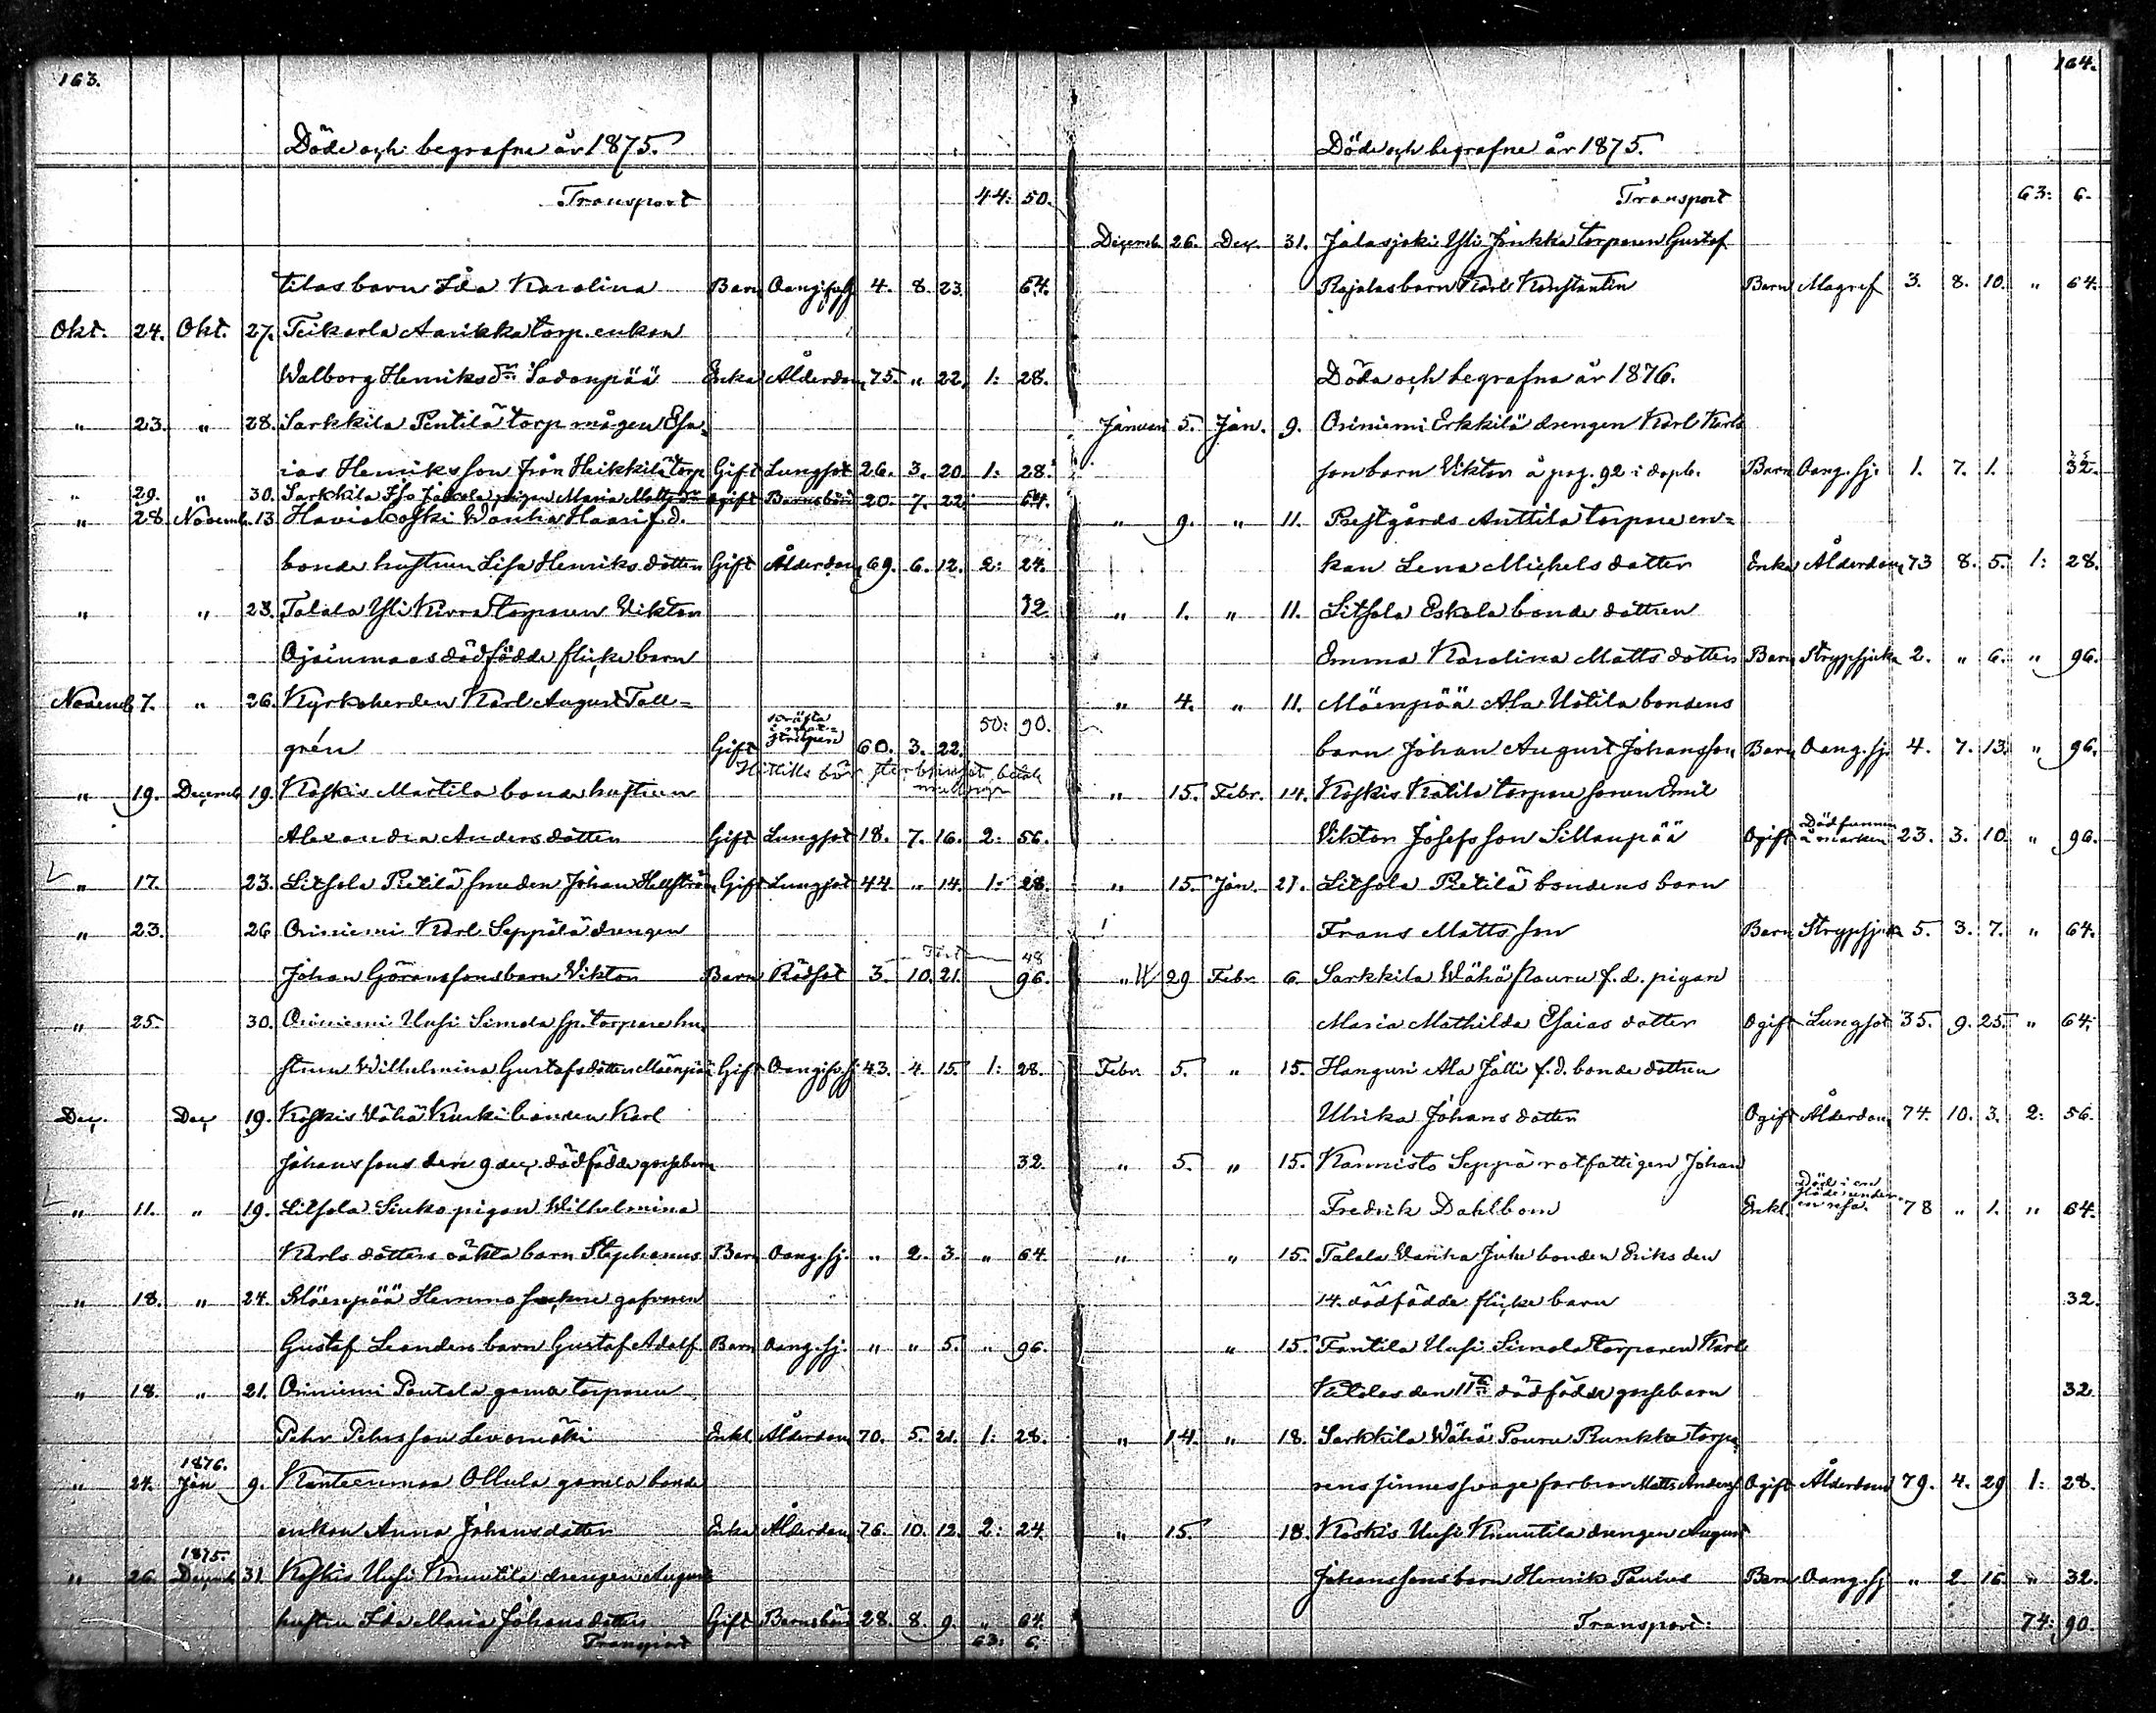 163.
Döde och begrafne år 1875.
Transport 44: 50.
tilas barn Ida Karolina Barn 4. 8. 23. 64.
Okt. 24. Okt. 27. Teikarla Aarikka torp. enkan
Walborg Henriksdr Sadanpää Enka Ålderdom 75. " 22. 1: 28.
" 23. " 28. Sarkkila Pentilä torp mågen Esa=
ias Henriksson från Heikkilä torp Gift Lungsot 26. 3. 20. 1: 28.
" 29. " 30. Sarkkila Iso Jaakola pigan Maria Matts dr ogift Barnsbörd 20. 7. 22. 64.
" 28 Novemb. 13. Haviokoski Wanha Haari f.d.
bonde hustrun Lisa Henriks dotter Gift Ålderdom 69. 6. 12. 2: 24.
" " 23. Talala Yli Kirra torparen Viktor 32
Ojainmaas dödfödde flicke barn
Novemb 7. " 26. Kyrkoherden Karl August Tall=
50: 90.
grén Gift kräfta i mat= strupen 60. 3. 22.
" 19. Decemb 19. Koskis Martila bonde hustrun
Alexandra Anders dotter Gift Lungsot 18. 7. 16. 2: 56.
" 17. 23. Litsola Pietilä smeden Johan Hellström Gift Lungsot 44. " 14. 1: 28.
" 23. 26 Oriniemi Karl Seppälä drengen
48
Johan Göranssons barn Viktor Barn Rödsot 3. 10. 21. 96.
" 25. 30. Oriniemi Uusi Simola sp. torpare hu
strun Wilhelmina Gustafsdotter Mäenpää Gift 43. 4. 15. 1: 28.
Dec. Dec 19. Koskis Vähä Kurki bonden Karl
Johanssons den 9 dec. dödfödde gossebarn 32.
" 11. " 19. Litsola Siuko pigan Wilhelmina
Karls dotters oäkta barn Stephanus Barn Oang. sj. " 2. 3. " 64.
" 18. " 24. Mäenpää Hemmo gafvaren
Gustaf Leanders barn Gustaf Adolf Barn Oang. sj. " " 5. " 96.
" 18. " 21. Oriniemi Pantala gamla torparen
Pehr Pehrsson Levomäki Enkl Ålderdom 70. 5. 21. 1: 28.
1876.
" 24. Jan 9. Kanteenmaa Ollula gamla bonde
enkan Anna Johansdotter Enka Ålderdom 76. 10. 12. 2: 24.
1875.
" 26. Decemb 31 Koskis Uusi Knuutila drengen August
hustru Ida Maria Johansdotter Gift Barnsbörd 28. 8. 9. " 64.
Transport 63: 6.
164.
Döde och begrafne år 1875.
Transport 63: 6.
Decemb. 26. Dec. 31. Jalasjoki Yli Jonkka torparen Gustaf
Rajalas barn Karl Konstantin Barn Magref 3. 8. 10. " 64.
Döda och begrafna år 1876.
Januari 5. Jan. 9. Oriniemi Erkkilä drengen Karl Karls
son barn Viktor å pag. 92 i dopb. Barn Oang. sj. 1. 7. 1. 32.
" 9. " 11. Prestgårds Anttila torpare en=
kan Lena Michels dotter Enka Ålderdom 73 8. 5. 1: 28.
" 1. " 11. Litsola Eskola bonde dottren
Emma Karolina Matts dotter Barn Strypsjuka 2. " 6. " 96.
" 4. " 11. Mäenpää Ala Uotila bondens
barn Johan August Johansson Barn Oang. sj. 4. 7. 13. " 96.
" 15. Febr. 14. Koskis Katila torpare sonen Emil
Viktor Josefsson Sillanpää Ogift Död funnen å marken 23. 3. 10. " 96.
" 15. Jan. 21. Litsola Pietilä bondens barn
Frans Matts son Barn Strypsjuka 5. 3. 7. " 64.
" 29 Febr. 6. Sarkkila Wähä Pouru f.d. pigan
Maria Mathilda Esaias dotter Ogift Lungsot 35. 9. 25. " 64.
Febr. 5. " 15. Hanguri Ala Jalli f.d. bonde dottren
Ulrika Johans dotter Ogift Ålderdom 74. 10. 3. 2: 56.
" 5. " 15. Kannisto Seppä rotfattigen Johan
Fredrik Dahlbom Enkl Död i en släde under en resa. 78 " 1. " 64.
" " 15. Talala Wanha Juha bonden Eriks den
14. dödfödde flicke barn 32.
" 15. Tantila Uusi Simola torparen Karl
Katilas den 11te dödfödde gossebarn 32
" 14. " 18. Sarkkila Wähä Pouru Runkka torpa
rens sinnessvage farbror Matts Anderss Ogift Ålderdom 79. 4. 29 1: 28.
" 15. 18. Koskis Uusi Knuutila drengen August
Johanssons barn Henrik Paulus Barn Oang. sj " 2. 16 " 32.
Transport: 74: 90.